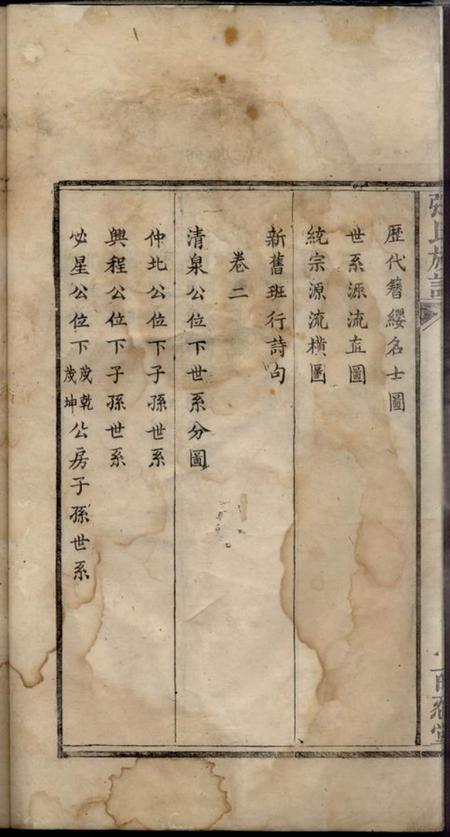 張氏族譜
百忍堂
歷代簪纓名士圖
世系源流直圖
統宗源流橫圖
新舊班行詩句
卷二
清泉公位下世系分圖
仲北公位下子孫世系
興程公位下子孫世系
必星公位下茂乾茂坤公房子孫世系